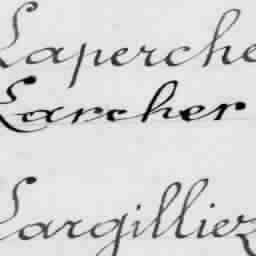 Laperche
Larcher
Largilliez